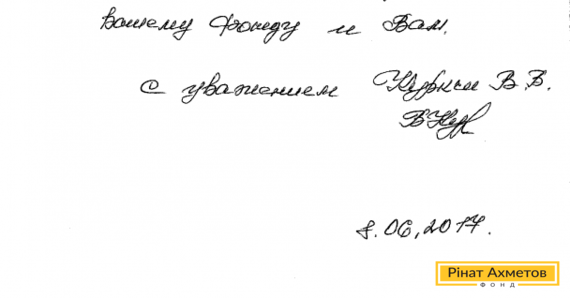 Вашему Фонду и Вам.
С уважением В. В.
8.06.2017.
Рінат Ахметов
ФОНД